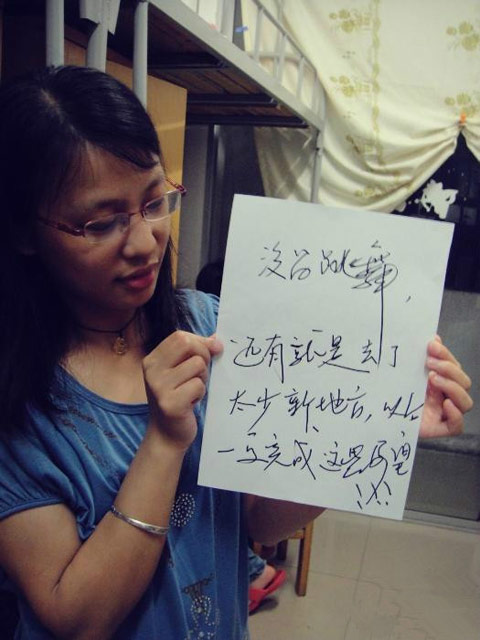 没学跳舞,
还有就是去了
太少新地方,以后
一定完成这些愿望
!!!